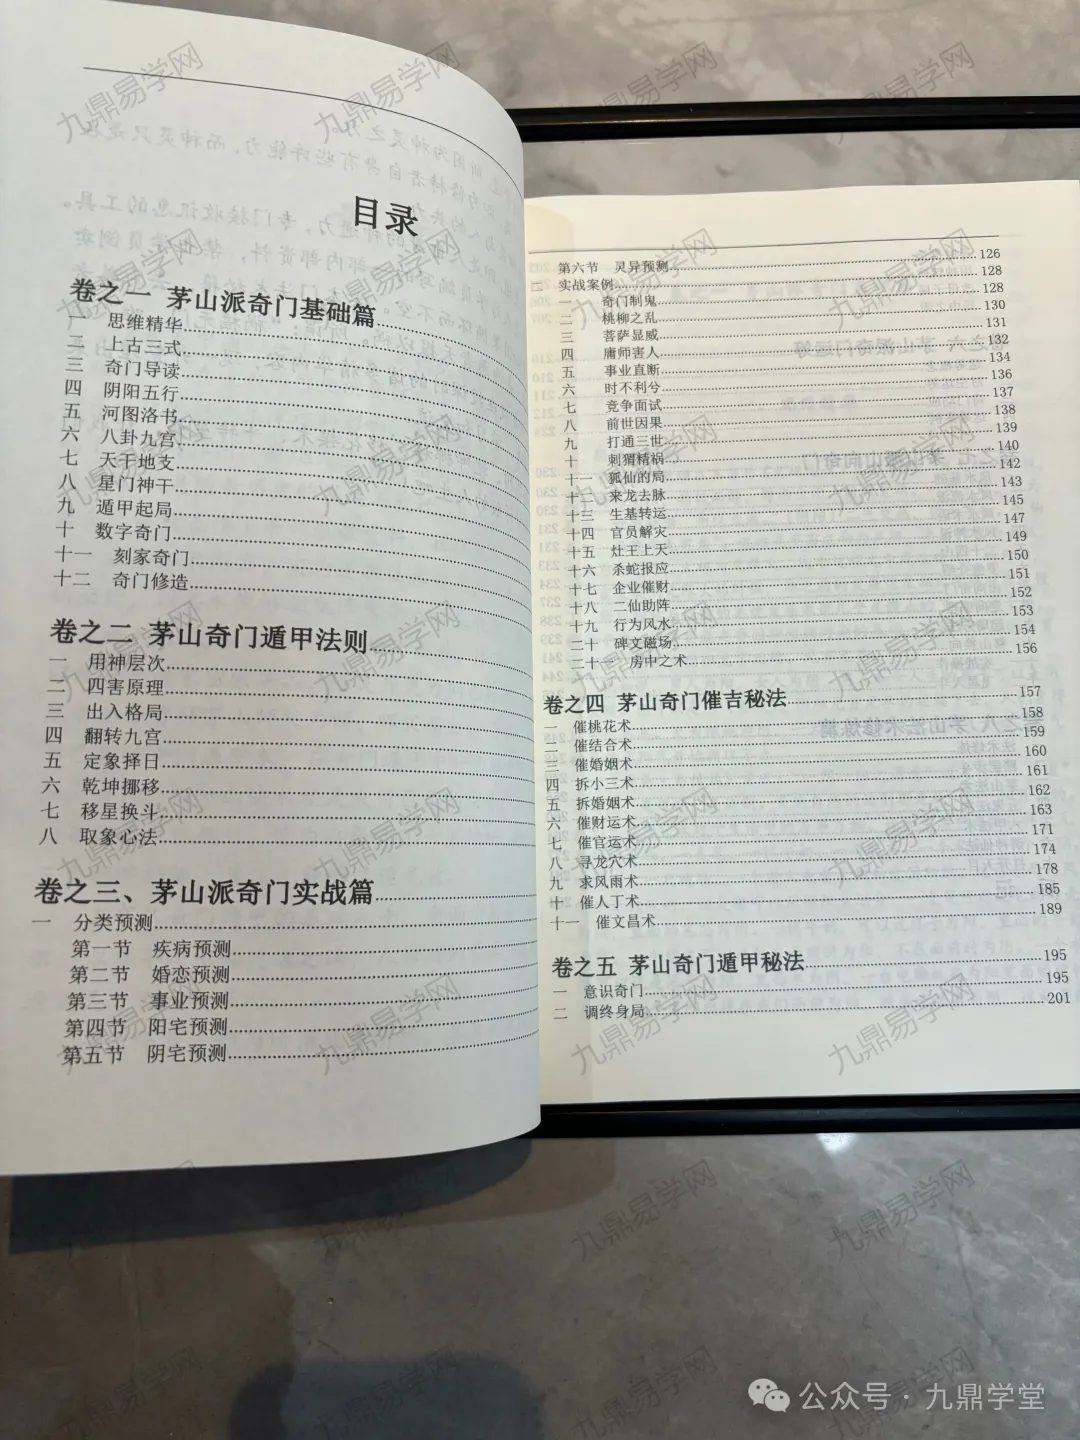 目录
卷之一 茅山派奇门基础篇
一 思维精华
二 上古三式
三 奇门导读
四 阴阳五行
五 河图洛书
六 八卦九宫
七 天干地支
八 星门神干
九 遁甲起局
十 数字奇门
十一 刻家奇门
十二 奇门修造
卷之二 茅山奇门遁甲法则
一 用神层次
二 四害原理
三 出入格局
四 翻转九宫
五 定象择日
六 乾坤挪移
七 移星换斗
八 取象心法
卷之三、茅山派奇门实战篇
一 分类预测
第一节 疾病预测
第二节 婚恋预测
第三节 事业预测
第四节 阳宅预测
第五节 阴宅预测
第六节 灵异预测 126
二 实战案例 128
一 奇门制鬼 128
二 桃柳之乱 130
三 菩萨显威 131
四 庸师害人 132
五 事业直断 134
六 时不利兮 136
七 竞争面试 137
八 前世因果 138
九 打通三世 139
十 刺猬精祸 140
十一 狐仙的局 142
十二 来龙去脉 143
十三 生基转运 145
十四 官员解灾 147
十五 灶王上天 149
十六 杀蛇报应 150
十七 企业催财 151
十八 二仙助阵 152
十九 行为风水 153
二十 碑文磁场 154
二十一 房中之术 156
卷之四 茅山奇门催吉秘法 157
一 催桃花术 158
二 催结合术 159
三 催婚姻术 160
四 拆小三术 161
五 拆婚姻术 162
六 催财运术 163
七 催官运术 171
八 寻龙穴术 174
九 求风雨术 178
十 催人丁术 185
十一 催文昌术 189
卷之五 茅山奇门遁甲秘法 195
一 意识奇门 195
二 调终身局 201
九鼎易学网
公众号 · 九鼎学堂